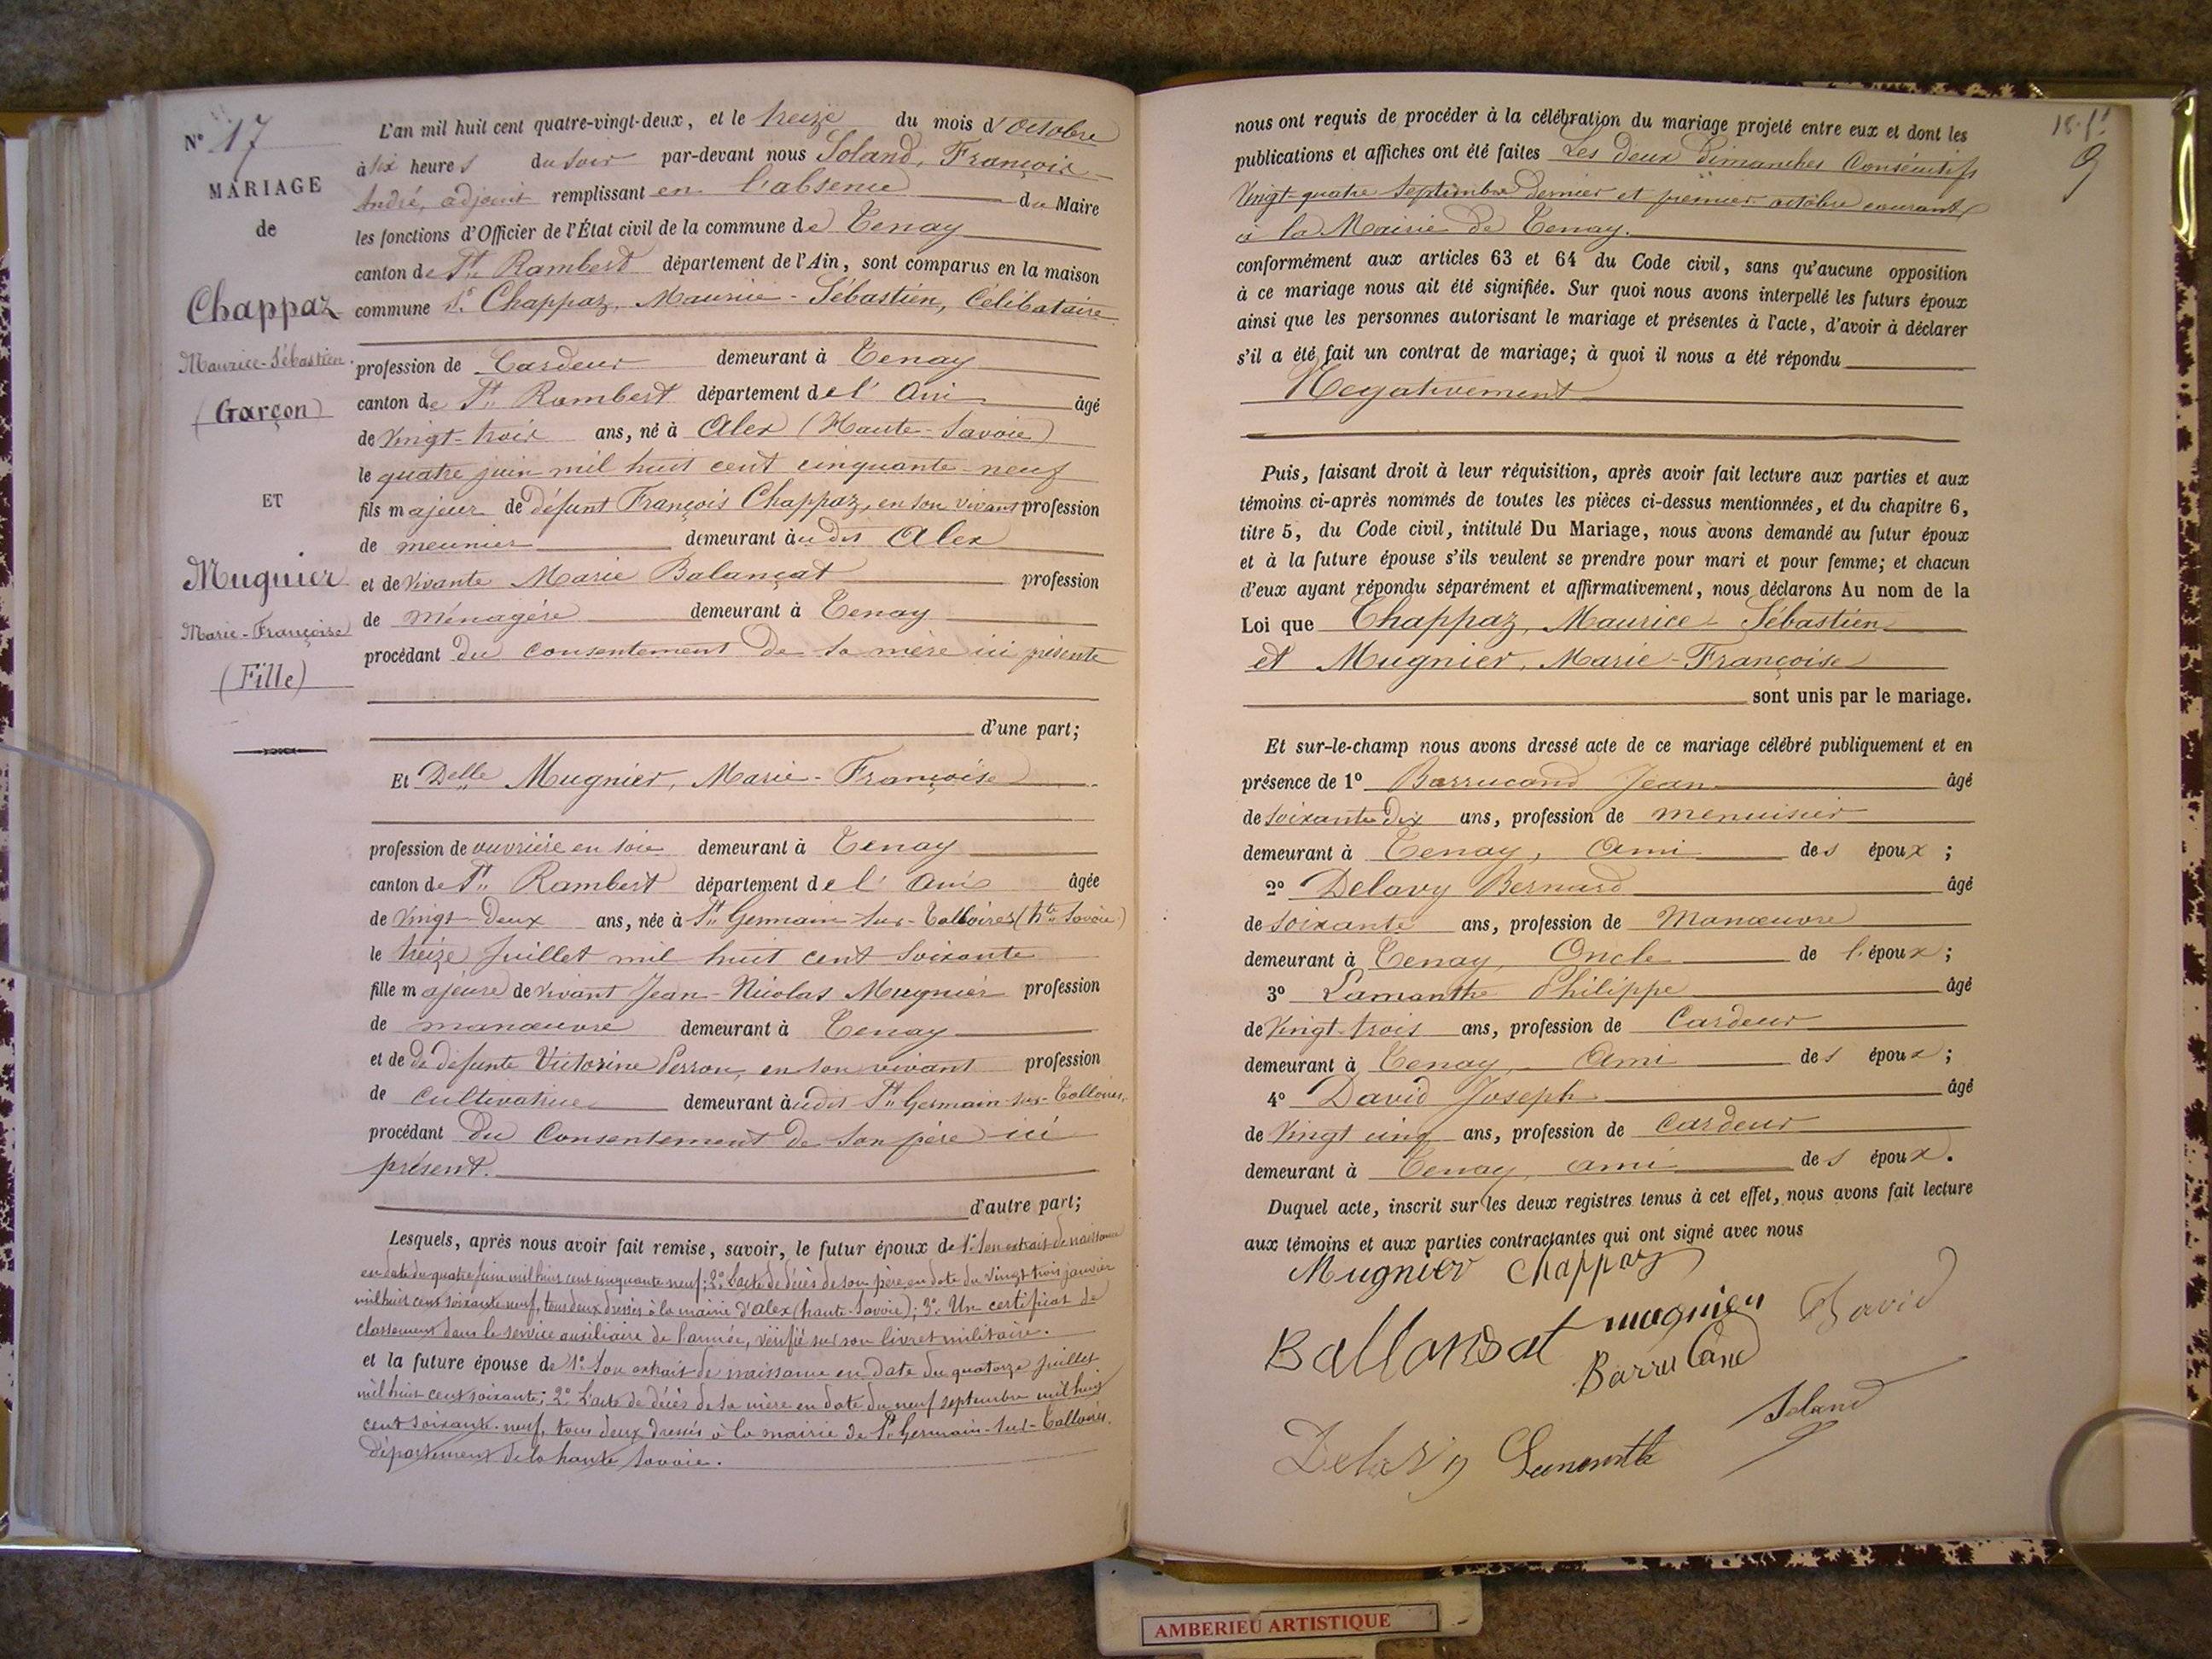 N° 17
MARIAGE
de
Chappaz
Maurice-Sébastien.
(Garçon)
ET
Mugnier
Marie-Françoise
(Fille)
L'an mil huit cent quatre-vingt-deux, et le treize du mois d'Octobre
à six heures du soir par-devant nous Soland, François-
André, adjoint remplissant en l'absence du Maire
les fonctions d'Officier de l'État civil de la commune de Tenay
canton de St Rambert département de l'Ain, sont comparus en la maison
commune Sr Chappaz, Maurice-Sébastien, Célibataire
profession de Cardeur demeurant à Tenay
canton de St Rambert département de l'Ain âgé
de Vingt-trois ans, né à Alex (Haute-Savoie)
le quatre juin mil huit cent cinquante-neuf
fils majeur de défunt François Chappaz, en son vivant profession
de meunier demeurant audit Alex
et de vivante Marie Balançat profession
de ménagère demeurant à Tenay
procédant du consentement de sa mère ici présente
d'une part;
Et Delle Mugnier, Marie-Françoise
profession de ouvrière en soie demeurant à Tenay
canton de St Rambert département de l'Ain âgée
de Vingt-deux ans, née à St Germain-sur-Talloires (hte Savoie)
le treize Juillet mil huit cent soixante
fille majeure de vivant Jean-Nicolas Mugnier profession
de manœuvre demeurant à Tenay
et de de défunte Victorine Perron, en son vivant profession
de cultivatrice demeurant audit St Germain-sur-Talloires,
procédant du Consentement de son père ici
présent.
d'autre part;
Lesquels, après nous avoir fait remise, savoir, le futur époux de 1° son extrait de naissance
en date du quatre Juin mil huit cent cinquante neuf; 2° L'acte de décès de son père en date du vingt trois janvier
mil huit cent soixante neuf, tous deux dressés à la mairie d'Alex (haute-Savoie); 3° Un certificat de
classement dans le service auxiliaire de l'armée, vérifié sur son livret militaire.
et la future épouse de 1° Son extrait de naissance en date du quatorze Juillet
mil huit cent soixante; 2° L'acte de décès de sa mère en date du neuf septembre mil huit
cent soixante-neuf, tous deux dressés à la mairie de St Germain-sur-Talloires,
département de la haute Savoie.
9
nous ont requis de procéder à la célébration du mariage projeté entre eux et dont les
publications et affiches ont été faites Les deux Dimanches Consécutifs
Vingt-quatre Septembre dernier et premier octobre courant
à la Mairie de Tenay.
conformément aux articles 63 et 64 du Code civil, sans qu'aucune opposition
à ce mariage nous ait été signifiée. Sur quoi nous avons interpellé les futurs époux
ainsi que les personnes autorisant le mariage et présentes à l'acte, d'avoir à déclarer
s'il a été fait un contrat de mariage; à quoi il nous a été répondu
Négativement
Puis, faisant droit à leur réquisition, après avoir fait lecture aux parties et aux
témoins ci-après nommés de toutes les pièces ci-dessus mentionnées, et du chapitre 6,
titre 5, du Code civil, intitulé Du Mariage, nous avons demandé au futur époux
et à la future épouse s'ils veulent se prendre pour mari et pour femme; et chacun
d'eux ayant répondu séparément et affirmativement, nous déclarons Au nom de la
Loi que Chappaz, Maurice-Sébastien
et Mugnier, Marie-Françoise
sont unis par le mariage.
Et sur-le-champ nous avons dressé acte de ce mariage célébré publiquement et en
présence de 1° Barrucand Jean âgé
de soixante dix ans, profession de menuisier
demeurant à Tenay, Ami des époux;
2° Delavy Bernard âgé
de soixante ans, profession de Manœuvre
demeurant à Tenay, Oncle de l'époux;
3° Lamanthe Philippe âgé
de Vingt-trois ans, profession de Cardeur
demeurant à Tenay, Ami des époux;
4° David Joseph âgé
de Vingt cinq ans, profession de Cardeur
demeurant à Tenay, ami des époux.
Duquel acte, inscrit sur les deux registres tenus à cet effet, nous avons fait lecture
aux témoins et aux parties contractantes qui ont signé avec nous
Mugnier Chappaz
Ballansat mugnier David
Barrucand
Soland
Delavy Lamanthe
AMBERIEU ARTISTIQUE